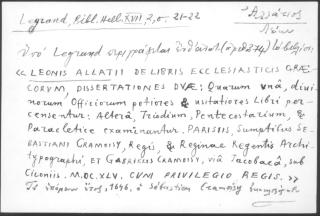 Legrand, Bibl. Hell. XVII, 2, σ. 21-22
Ἀλλάτιος
Λέων
Ὑπό Legrand περιγράφεται
« LEONIS ALLATII DE LIBRIS ECCLESIASTICIS GRÆ
CORVM, DISSERTATIONES DVÆ: Quarum vnâ, divi
norum Officiorum potiores & usitatiores Libri per
censentur: Alterâ, Triodium, Pentecostarium, &
Paracletice examinantur. PARISIIS, Sumptibus SE-
BASTIANI CRAMOISY, Regis, & Reginae Regentis Archi-
typographi, ET GABRIELIS CRAMOISY, viâ Jacobaeâ, sub
Ciconiis. M.DC.XLV. CVM PRIVILEGIO REGIS. »
Τό ἑπόμενον ἔτος, 1646, ὁ Sébastien Cramoisy